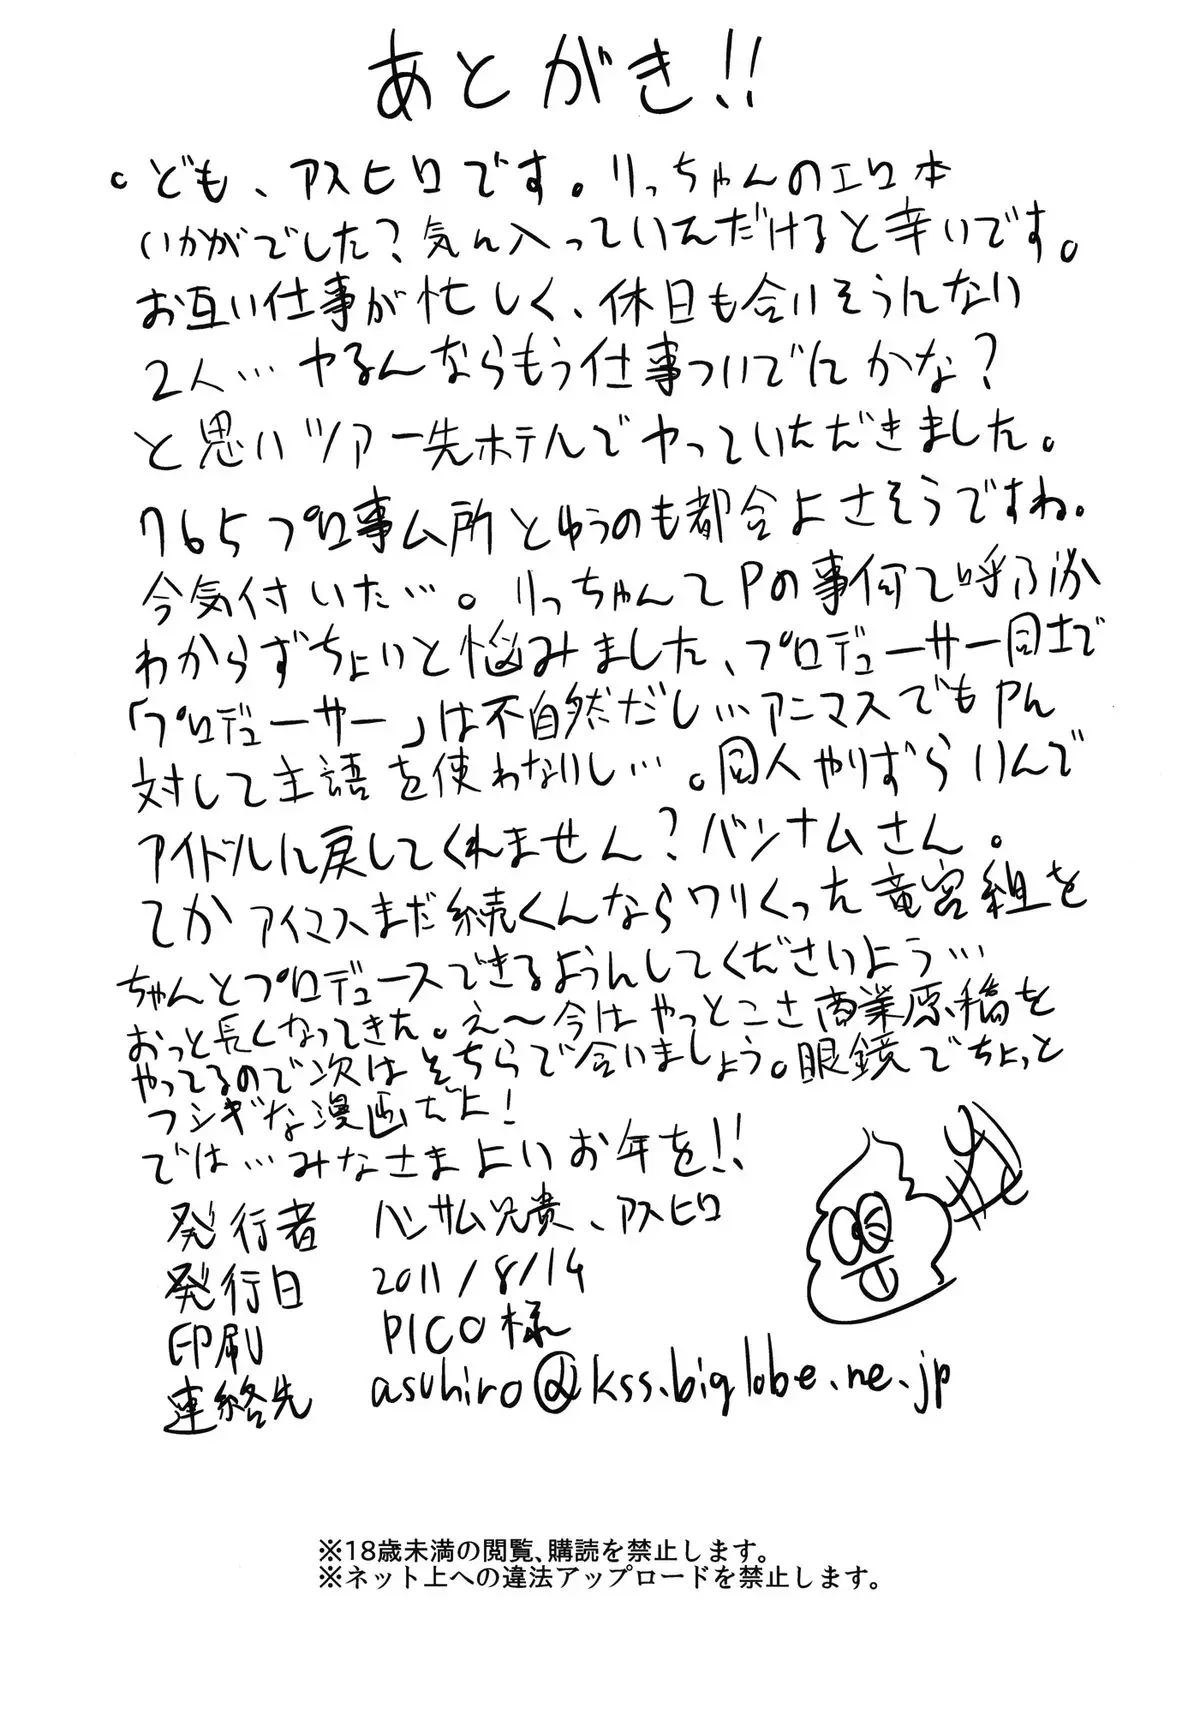 あとがき!!
。ども、アスヒロです。りっちゃんのエロ本
いかがでした?気に入っていただけると幸いです。
お互い仕事が忙しく、休日も合いそうにない
2人… ヤるんならもう仕事ついでにかな?
と思いツアー先ホテルでヤっていただきました。
765プロ事ム所とゆうのも都合よさそうですね。
今気付いた…。りっちゃんてPの事何て呼ぶか
わからずちょいと悩みました、プロデューサー同士で
「プロデューサー」は不自然だし…アニマスでもPに
対して主語を使わないし…。同人やりずらいんで
アイドルに戻してくれません?バンナムさん。
てかアイマスまだ続くんならワリくった竜宮組を
ちゃんとプロデュースできるようにしてくださいよう…
おっと長くなってきた。え〜今はやっとこさ商業原稿を
やってるので次はそちらで会いましょう。眼鏡でちょっと
フシギな漫画だよ!
では…みなさまよいお年を!!
発行者 ハンサム兄貴、アスヒロ
発行日 2011/8/14
印刷 PICO様
連絡先 asuhiro@kss.biglobe.ne.jp
※18歳未満の閲覧、購読を禁止します。
※ネット上への違法アップロードを禁止します。